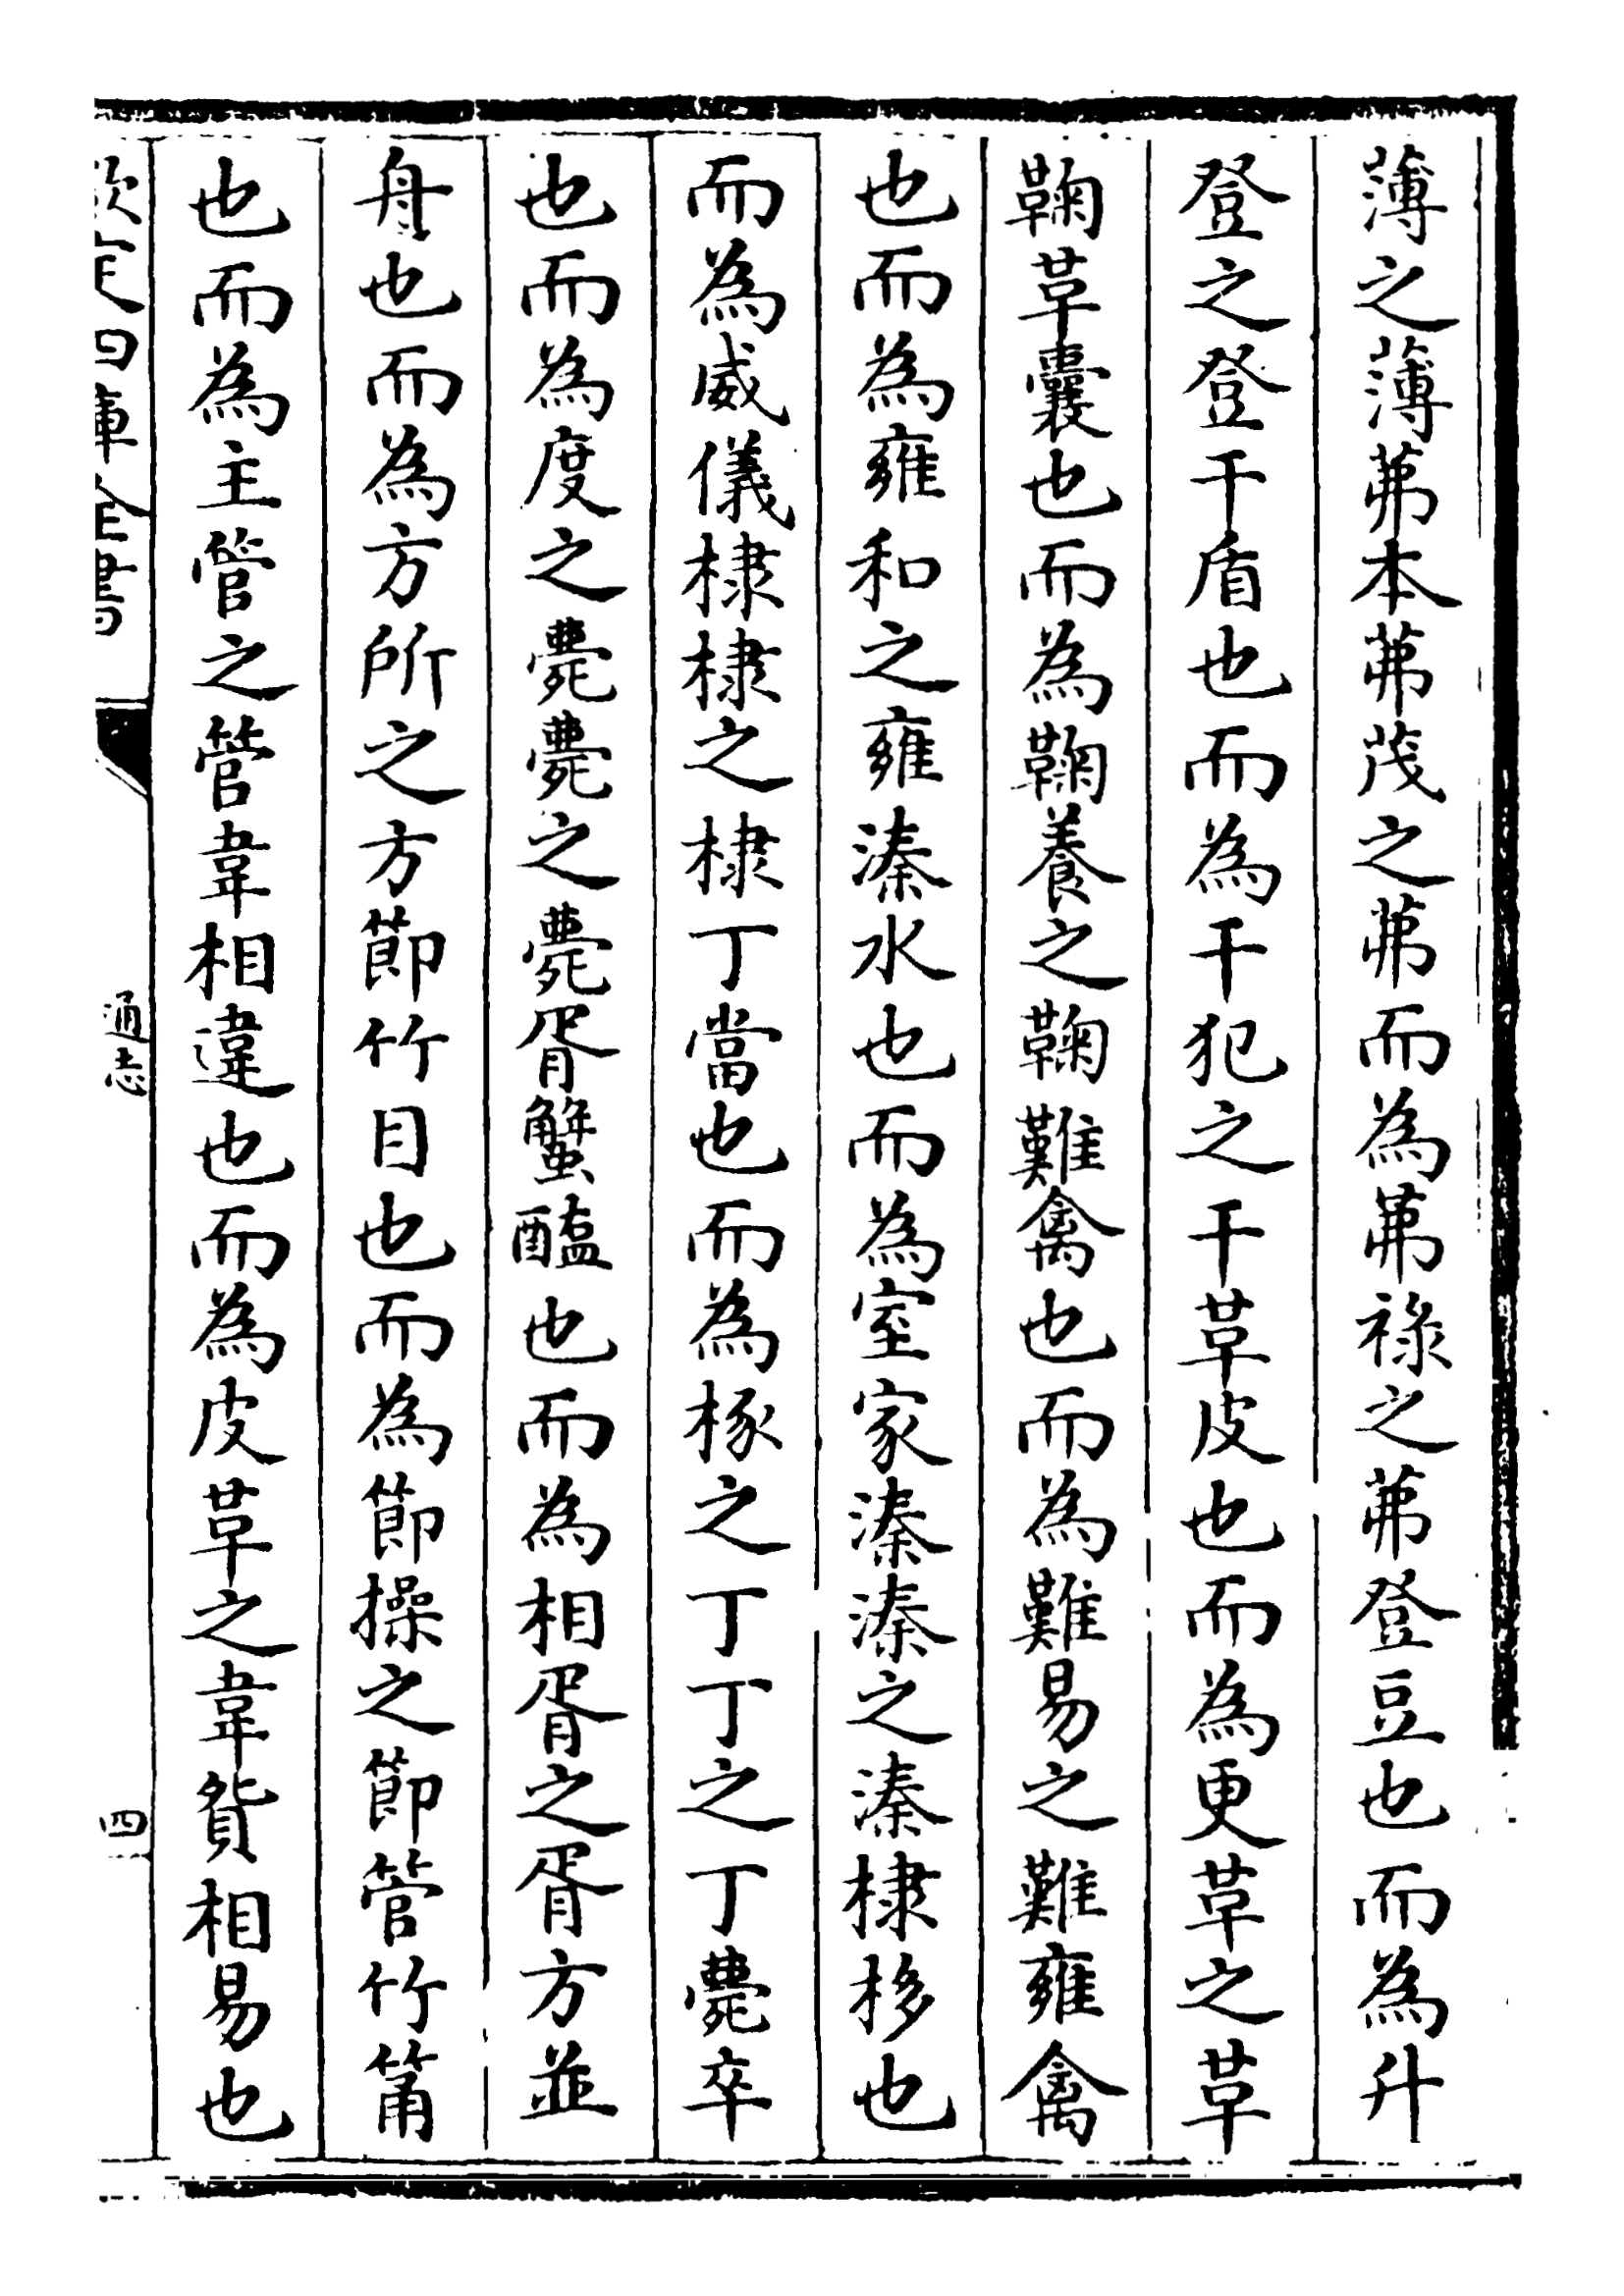 薄之薄茀本茀茂之茀而為茀祿之茀登豆也而為升
登之登干盾也而為干犯之干革皮也而為更革之革
鞠革囊也而為鞠養之鞠難禽也而為難易之難雍禽
也而為雍和之雍溱水也而為室家溱溱之溱棣栘也
而為威儀棣棣之棣丁當也而為椓之丁丁之丁薨卒
也而為度之薨薨之薨胥蟹醢也而為相胥之胥方並
舟也而為方所之方節竹目也而為節操之節管竹筩
也而為主管之管韋相違也而為皮革之韋貿相易也
欽定四庫全書
通志
四